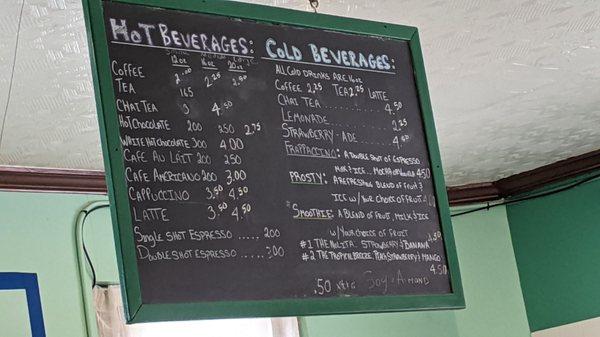 HOT BEVERAGES:
12oz 16oz 20oz
COFFEE 2.00 2.25 2.50
TEA 1.65
CHAI TEA 3 4.50
HOT CHOCOLATE 200 250 2.75
WHITE HOT CHOCOLATE 300 4.00
CAFE AU LAIT 200 250
CAFE AMERICANO 2.00 3.00
CAPPUCCINO 3.50 4.50
LATTE 3.50 4.50
SINGLE SHOT ESPRESSO ..... 200
DOUBLE SHOT ESPRESSO ..... 300
COLD BEVERAGES:
ALL COLD DRINKS ARE 16oz
COFFEE 2.25 TEA 2.25 LATTE 4.50
CHAI TEA ........ 4.50
LEMONADE ........ 2.25
STRAWBERRY-ADE ....... 4.50
FRAPPACCINO: A DOUBLE SHOT OF ESPRESSO
MILK & ICE. MOCHA OR VANILLA 4.50
FROSTY: A REFRESHING BLEND OF FRUIT &
ICE W/ YOUR CHOICE OF FRUIT
SMOOTHIE: A BLEND OF FRUIT, MILK & ICE
W/ YOUR CHOICE OF FRUIT
#1 THE MULITA. STRAWBERRY & BANANA 4.50
#2 THE TROPICAL BREEZE. PEACH, STRAWBERRY & MANGO
4.50
.50 xtra Soy & Almond